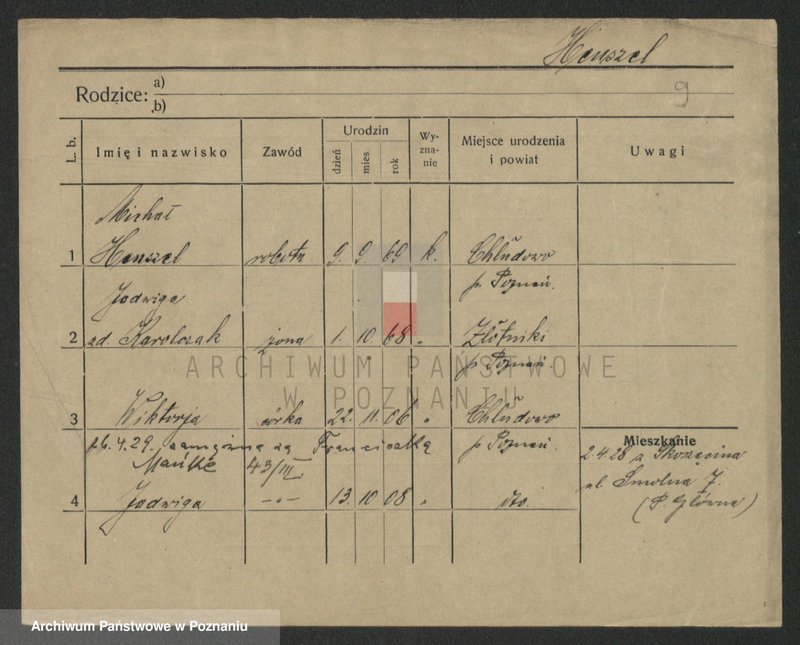 Henszel
Rodzice: a)
b)
9
L. b.
Imię i nazwisko
Zawód
Urodzin
dzień
mies.
rok
Wy-
zna-
nie
Miejsce urodzenia
i powiat
Uwagi
Michał
1 Henszel robotn. 9. 9. 69 k. Chłudowo
p. Poznań.
Jadwiga
2 zd. Karolczak żona 1. 10. 68 „ Złotniki
p. Poznań
3 Wiktorja córka 22. 11. 06 „ Chłudowo
p. Poznań.
26.4.29. zamężna za Franciszka
43/III
4 Jadwiga -„- 13. 10. 08 „ dto.
Mieszkanie
2.4.28 z Skorzęcina
ul. Smolna 7.
(P. Główna)
ARCHIWUM PAŃSTWOWE
W POZNANIU
Archiwum Państwowe w Poznaniu